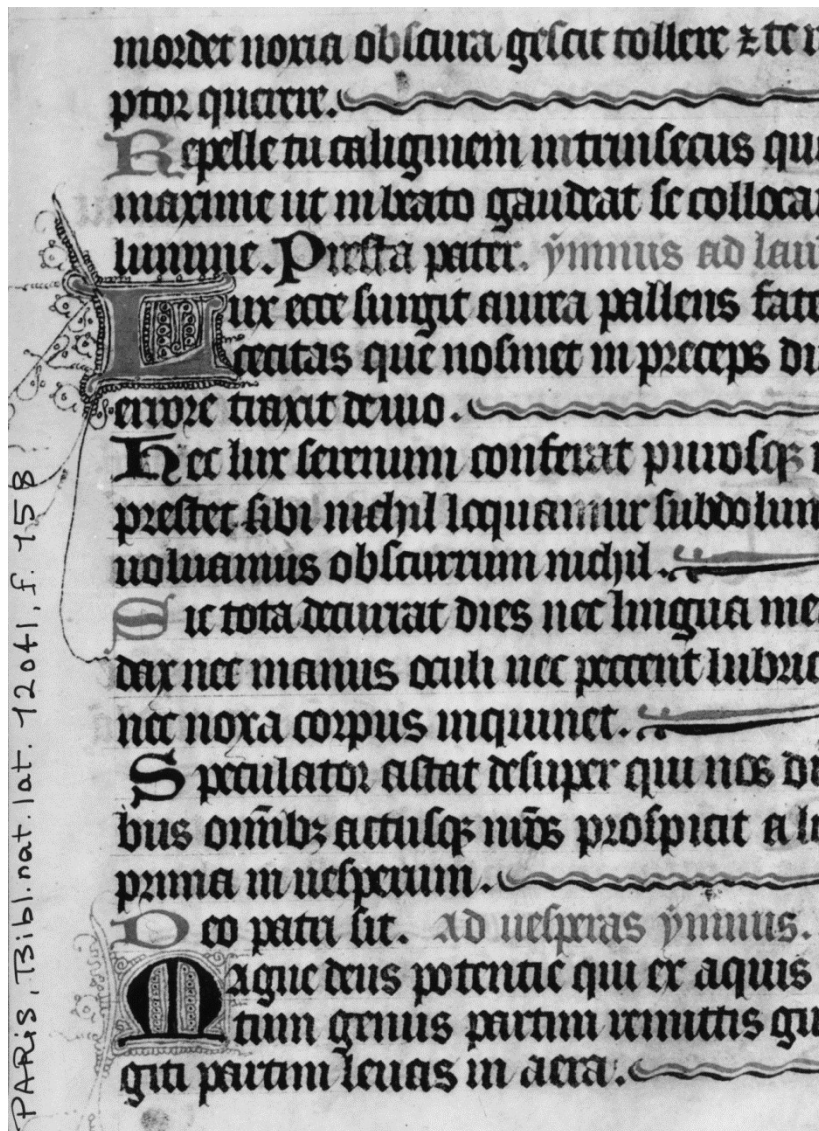 mordet noxia obscura gescit tollere ⁊ te
ptor querere.
Repelle tu caliginem intrinsecus qua
maxime ut in beato gaudeat se colloca
lumine. Presta pater. ẏmnus ad lau
Lux ecce surgit aurea pallens fate
cecitas que nosmet in preceps di
errore traxit devio.
Hec lux serenum conferat purosqꝫ
prestet sibi nichil loquamur subdolum
uoluamus obscurum nichil.
Sic tota decurrat dies nec lingua me
dax nec manus oculi nec peccent lubric
nec noxa corpus inquinet.
Speculator astat desuper qui nos di
bus om̄ibꝫ actusqꝫ nr̄os prospicit a lu
prima in uesperum.
Deo patri sit. Ad uesperas ẏmnus.
Magne deus potentie qui ex aquis
tum genus partim remittis gu
giti partim leuas in aera.
PARIS, Bibl. nat. lat. 12041, f. 158